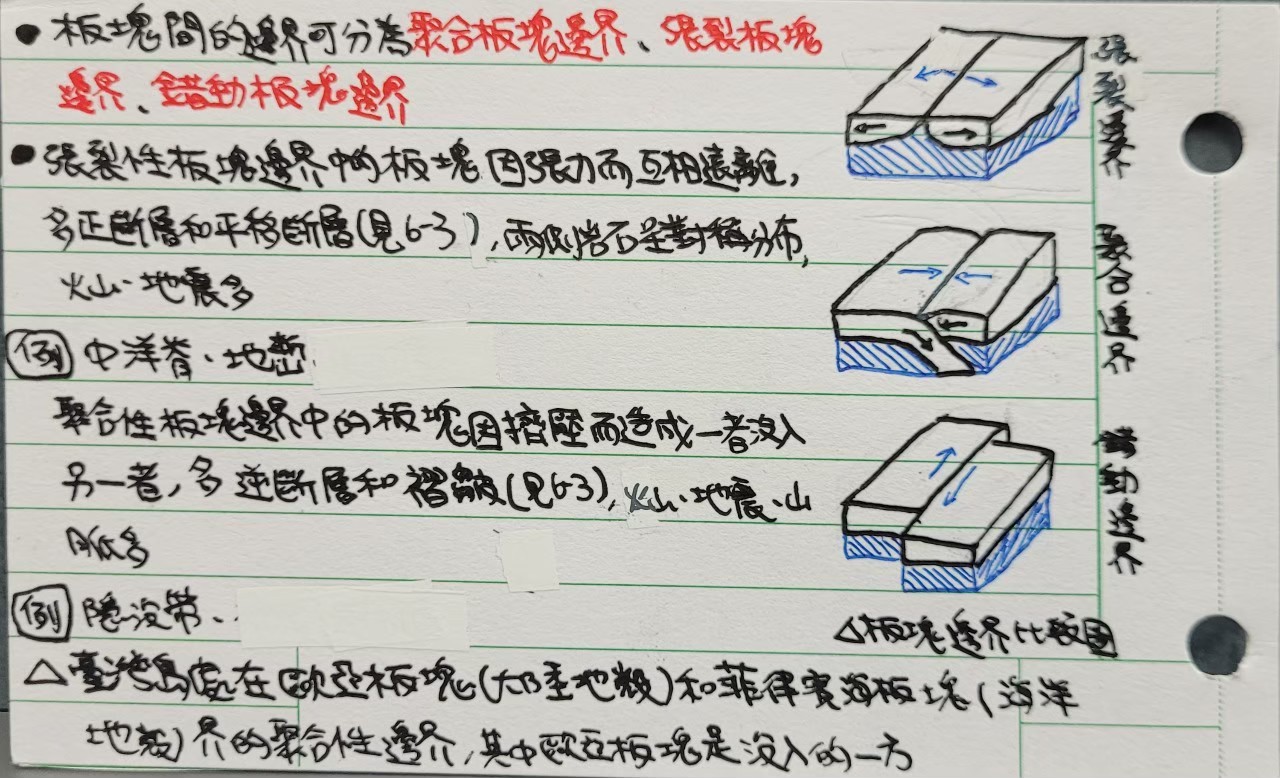 ● 板塊間的邊界可分為聚合板塊邊界、張裂板塊
邊界、錯動板塊邊界
● 張裂性板塊邊界中的板塊因張力而互相遠離,
多正斷層和平移斷層(見6-3),兩側岩石呈對稱分布,
火山、地震多
例 中洋脊、地塹
聚合性板塊邊界中的板塊因擠壓而造成一者沒入
另一者,多逆斷層和褶皺(見6-3),火山、地震、山
脈多
例 隱沒帶、
△臺灣島處在歐亞板塊(大陸地殼)和菲律賓海板塊(海洋
地殼)界的聚合性邊界,其中歐亞板塊是沒入的一方
張裂邊界
聚合邊界
錯動邊界
△板塊邊界比較圖